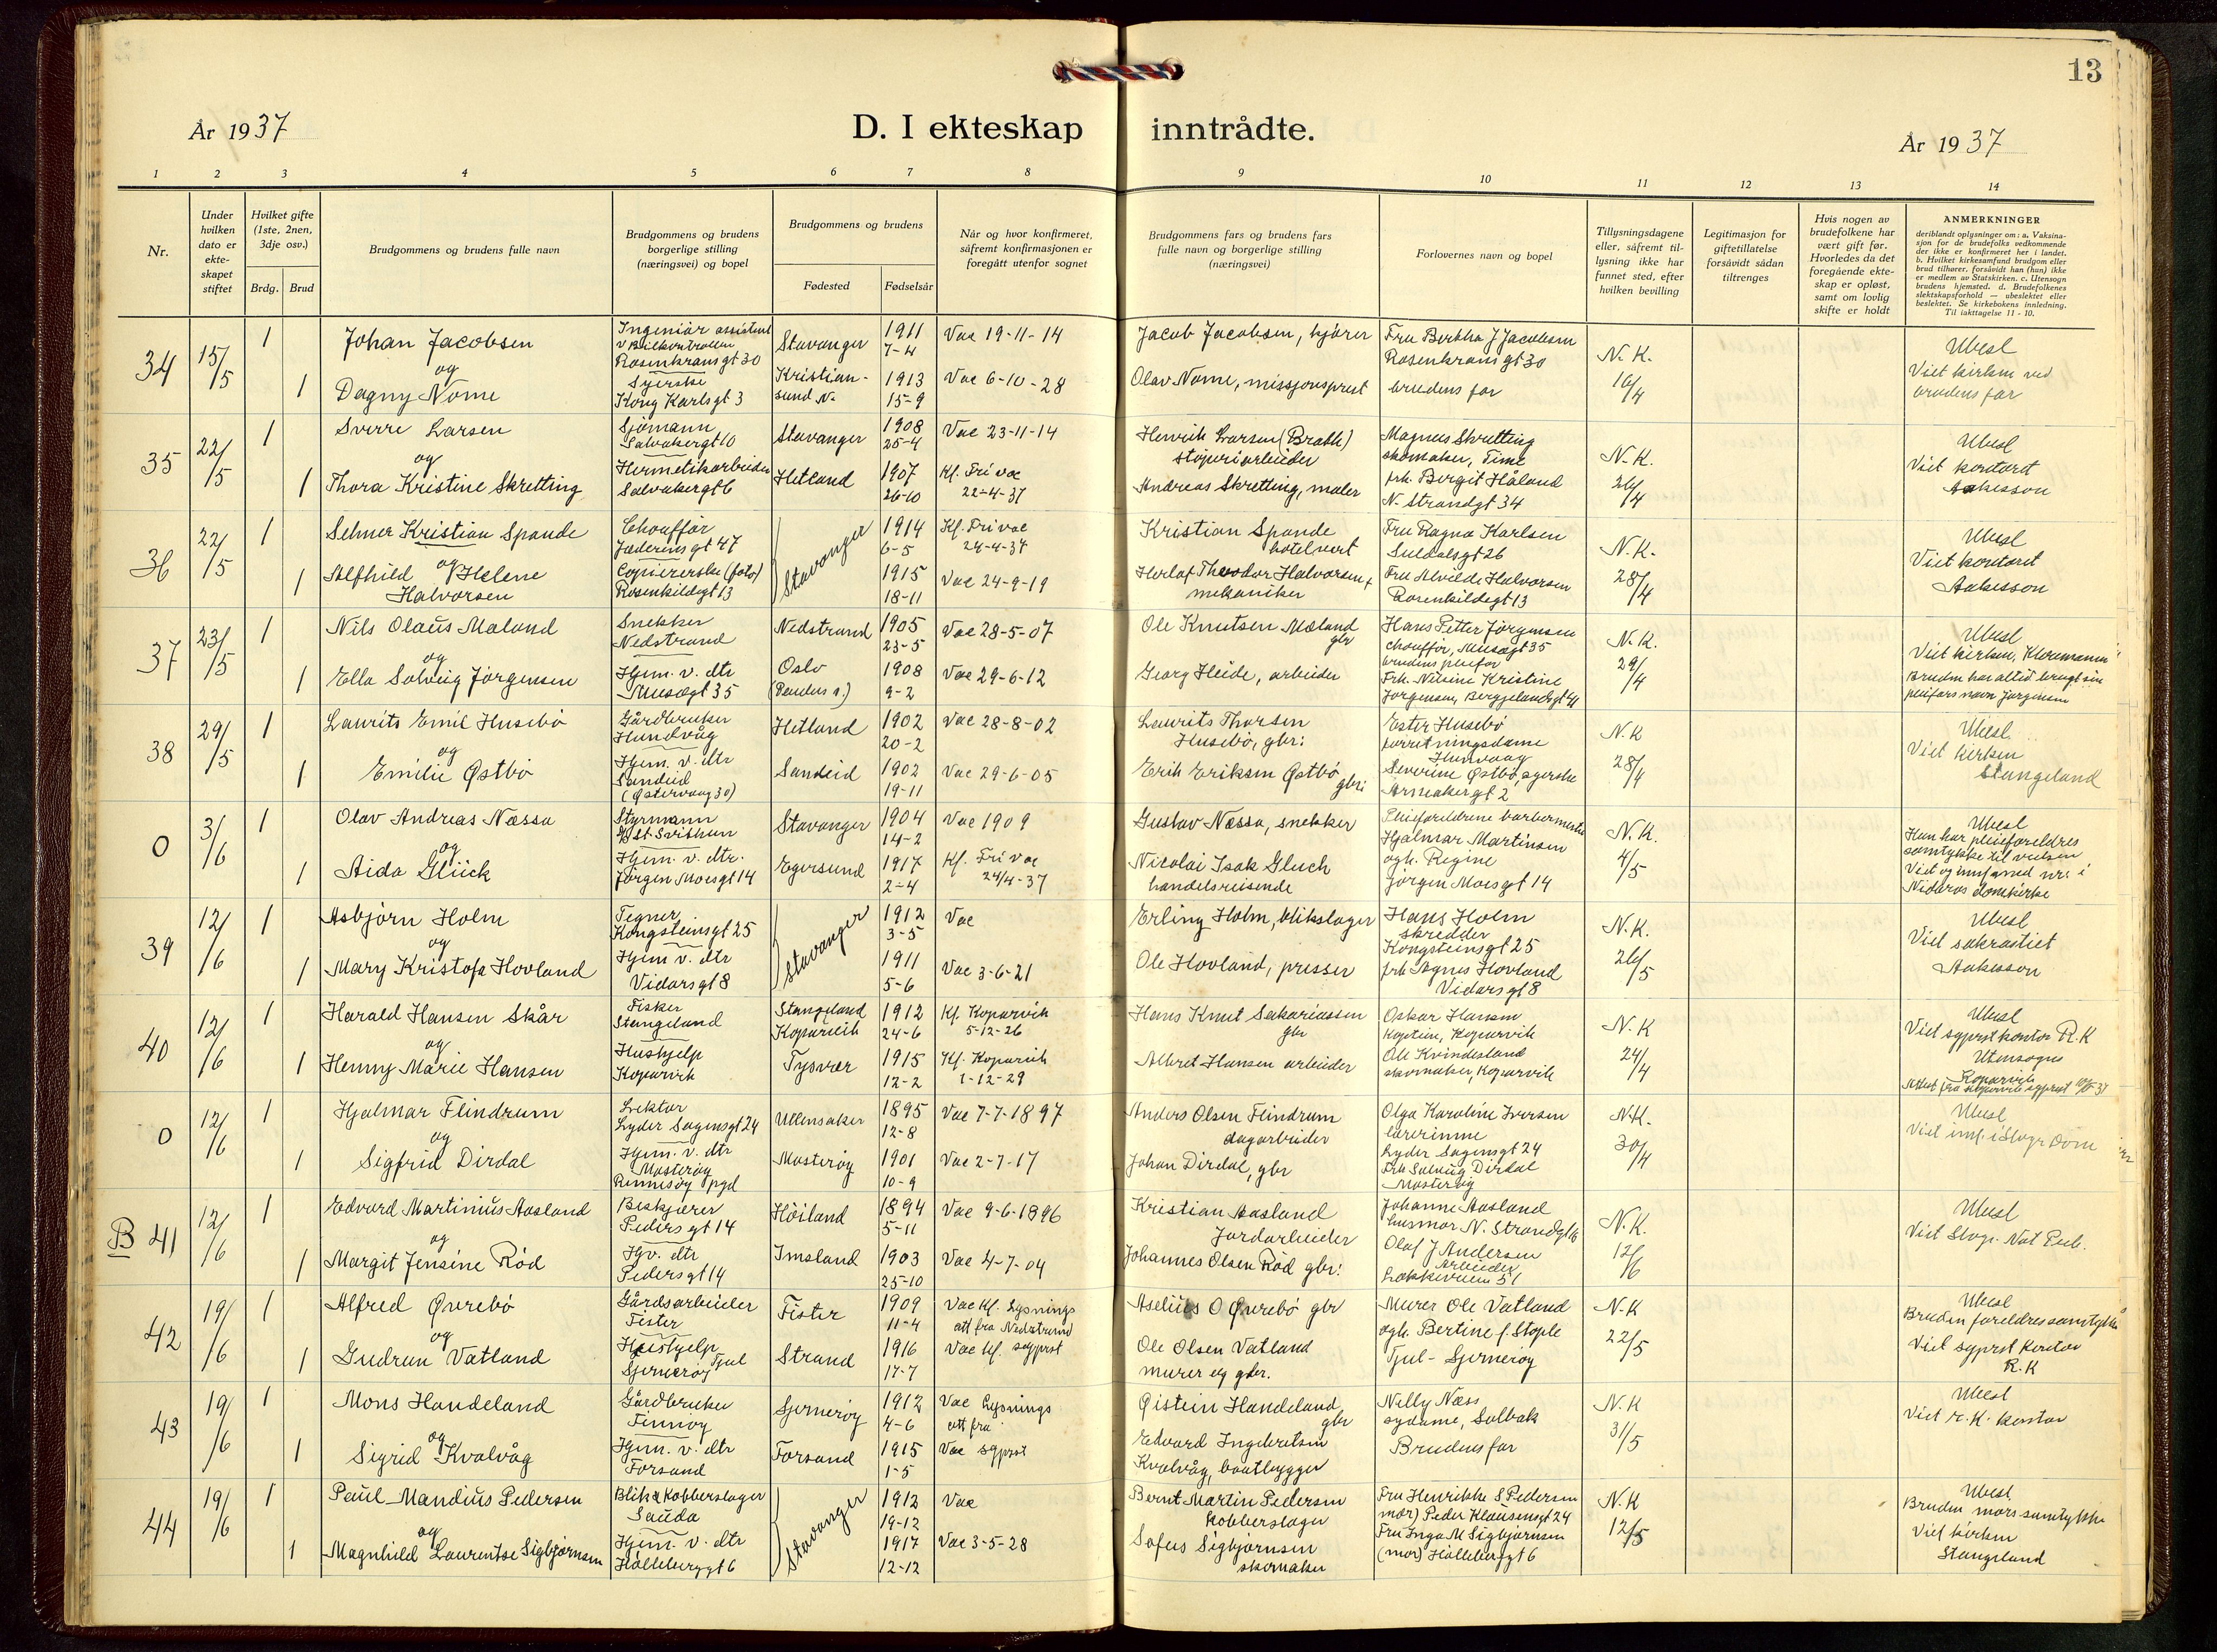 13
År 1937
D. I ekteskap inntrådte.
År 1937
1 2 3 4 5 6 7 8 9 10 11 12 13 14
Nr.
Under hvilken dato er ekte- skapet stiftet
Hvilket gifte (1ste, 2nen, 3dje osv.)
Brdg. Brud
Brudgommens og brudens fulle navn
Brudgommens og brudens borgerlige stilling (næringsvei) og bopel
Brudgommens og brudens
Fødested Fødselsår
Når og hvor konfirmeret, såfremt konfirmasjonen er foregått utenfor sognet
Brudgommens fars og brudens fars fulle navn og borgerlige stilling (næringsvei)
Forlovernes navn og bopel
Tillysningsdagene eller, såfremt til- lysning ikke har funnet sted, efter hvilken bevilling
Legitimasjon for giftetillatelse forsåvidt sådan tiltrenges
Hvis nogen av brudefolkene har vært gift før. Hvorledes da det foregående ekte- skap er opløst, samt om lovlig skifte er holdt
ANMERKNINGER
deriblandt oplysninger om: a. Vaksina- sjon for de brudefolks vedkommende der ikke er konfirmeret her i landet. b. Hvilket kirkesamfund brudgom eller brud tilhører, forsåvidt han (hun) ikke er medlem av Statskirken. c. Utensogn brudens hjemsted. d. Brudefolkenes slektskapsforhold — ubeslektet eller beslektet. Se kirkebokens innledning. Til iakttagelse 11 - 10.
34 15/5 1 Johan Jacobsen Ingeniør assistent v Bilkontrollen Rosenkransgt 30 Stavanger 1911 7-4 Vac 19-11-14 Jacob Jacobsen, kjører Fru Bertha J Jacobsen Rosenkransgt 30 N.K. 16/4 Ubesl
og
1 Dagny Nome Syerske Kong Karlsgt 3 Kristian- sund N. 1913 15-9 Vac 6-10-28 Olav Nome, missjonsprest brudens far Viet kirken ved brudens far
35 22/5 1 Sverre Larsen Sjømann Salvakergt 10 Stavanger 1908 25-4 Vac 23-11-14 Henrik Larsen (Brath) støperiarbeider Magnus Skretting skomaker, Time N.K. 26/4 Ubesl
og
1 Thora Kristine Skretting Hermetikarbeider Salvakergt 6 Hetland 1907 26-10 Kf. Tri vac 22-4-37 Andreas Skretting, maler frk. Bergit Håland N. Strandgt 34 Viet kontoret Aakesson
36 22/5 1 Selmer Kristian Spande Chauffør Jæderens gt 47 Stavanger 1914 6-5 Kf. Tri vac 24-4-37 Kristian Spande hotelvert Fru Ragna Karlsen Suldalsgt 26 N.K. 28/4 Ubesl
og
1 Alfhild Helene Halvorsen Copiererske (foto) Rosenkildegt 13 1915 18-11 Vac 24-9-19 Herlof Theodor Halvorsen, mekaniker Fru Alvilde Halvorsen Rosenkildegt 13 Viet kontoret Aakesson
37 23/5 1 Nils Olaus Maland Snekker Nedstrand Nedstrand 1905 23-5 Vac 28-5-07 Ole Knutsen Mæland gbr Hans Petter Jörgensen chauffør, Musægt 35 brudens pleiefar N.K. 29/4 Ubesl
og
1 Ella Solveig Jörgensen Hjem. v. dtr Musægt 35 Oslo (Paulus s.) 1908 9-2 Vac 29-6-12 Georg Heide, arbeider Frk. Nilsine Kristine Jörgensen, Bergjelandsgt 41 Viet kirken, Kloumann Bruden har altid brugt sin pleifars navn Jørgensen
38 29/5 1 Laurits Emil Husebö Gårdbruker Hundvåg Hetland 1902 20-2 Vac 28-8-02 Laurits Thorsen Husebö, gbr: Ester Husebö forretningsdame Hundvaag N.K 28/4 Ubesl
og
1 Emilie Østbö Hjem. v. dtr Sandeid (Østervaag 30) Sandeid 1902 19-11 Vac 29-6-05 Erik Eriksen Østbö gbr: Severine Østbö, syerske Armakergt 2 Viet kirken Stangeland
0 3/6 1 Olav Andreas Næssa Styrmann D/S St. Svithun Stavanger 1904 14-2 Vac 1909 Gustav Næssa, snekker Pleieforeldrene barbermester Hjalmar Martinsen N.K. 4/5 Ubesl
og
1 Aida Glück Hjem. v. dtr. Jørgen Moesgt 14 Egersund 1917 2-4 Kf. Tri vac 24/4-37 Nicolai Isak Gluck handelsreisende ogh. Regine Jørgen Moesgt 14 Hun har pleieforeldres samtykke til vielsen Viet og innf. med nr: i Nidaros domkirke
39 12/6 1 Asbjørn Holm Tegner Kongsteinsgt 25 Stavanger 1912 3-5 Vac Erling Holm, blikslager Hans Holm skredder Kongsteinsgt 25 N.K. 26/5 Ubesl
og
1 Mary Kristofa Hovland Hjem v. dtr Vidarsgt 8 1911 5-6 Vac 3-6-21 Ole Hovland, presser frk Agnes Hovland Vidarsgt 8 Viet sakrastiet Aakesson
40 12/6 1 Harald Hansen Skår Fisker Stangeland Stangeland Kopervik 1912 24-6 Kf. Kopervik 5-12-26 Hans Knut Sakariassen gbr Oskar Hansen kaptein, Kopervik N.K 24/4 Ubesl
og
1 Henny Marie Hansen Hushjelp Kopervik Tysvær 1915 12-2 Kf. Kopervik 1-12-29 Albret Hansen arbeider Ole Kvindesland skomaker, Kopervik Viet sgprst kontor R.K Utensogns Kopervik
0 12/6 1 Hjalmar Flindrum Lektor Lyder Sagensgt 24 Ullensaker 1895 12-8 Vac 7-7-1897 Anders Olsen Flindrum dagarbeider Olga Karoline Iversen lærerinne Lyder Sagensgt 24 N.K. 30/4 Ubesl
og
1 Sigfrid Dirdal Hjem. v. dtr Mosterøy Rennesøy pgd Mosterøy 1901 10-9 Vac 2-7-17 Johan Dirdal, gbr Frk Solveig Dirdal Mosterøy Viet inf. i Stvgr Dom
B 41 12/6 1 Edvard Martinius Aasland Beskjærer Pedersgt 14 Höiland 1894 5-11 Vac 9-6-1896 Kristian Aasland Jordarbeider Johanne Aasland husmor N. Strandgt N.K. 12/6 Ubesl
og
1 Margit Jensine Rød Hjv. dtr Pedersgt 14 Imsland 1903 25-10 Vac 4-7-04 Johannes Olsen Rød gbr: Olaf J Andersen Arbeider Løkkeveien 51 Viet Stvgr. Not Pub.
42 19/6 1 Alfred Øvrebö Gårdsarbeider Fister Fister 1909 11-4 Vac Kf. Lysnings att fra Nedstrand Aselius O Øvrebö gbr Murer Ole Vatland N.K 22/5 Ubesl
og
1 Gudrun Vatland Hushjelp Sjernerøy Tjul Strand 1916 17-7 Vac Kf. sgprst Ole Olsen Vatland murer og gbr. ogh. Bertine f. Stople Tjul - Sjernerøy Bruden foreldres samtykke Viet sgprst kontor R.K
43 19/6 1 Mons Handeland Gårdbruker Finnøy Sjernerøy 1912 4-6 Vac Lysnings att fra Øistein Handeland gbr Nelly Næss sydame, Solbak N.K 31/5 Ubesl
og
1 Sigrid Kvalvåg Hjem. v. dtr Forsand Forsand 1915 1-5 Vac sgprst Edvard Ingebretsen Kvalvåg, baatbygger Brudens far Viet r.K. kontor
44 19/6 1 Paul Mandius Pedersen Blik & Kobberslager Sauda Stavanger 1912 19-12 Vac Bernt Martin Pedersen kobberslager Fru Henrikke S Pedersen (mor) Peder Klausensgt 24 N.K 12/5 Ubesl
og
1 Magnhild Laurentse Sigbjørnsen Hjem. v. dtr Hålleberggt 6 1917 12-12 Vac 3-5-28 Sofus Sigbjørnsen skomaker Fru Inga M Sigbjørnsen (mor) Hålleberggt 6 Bruden mors samtykke Viet kirken Stangeland